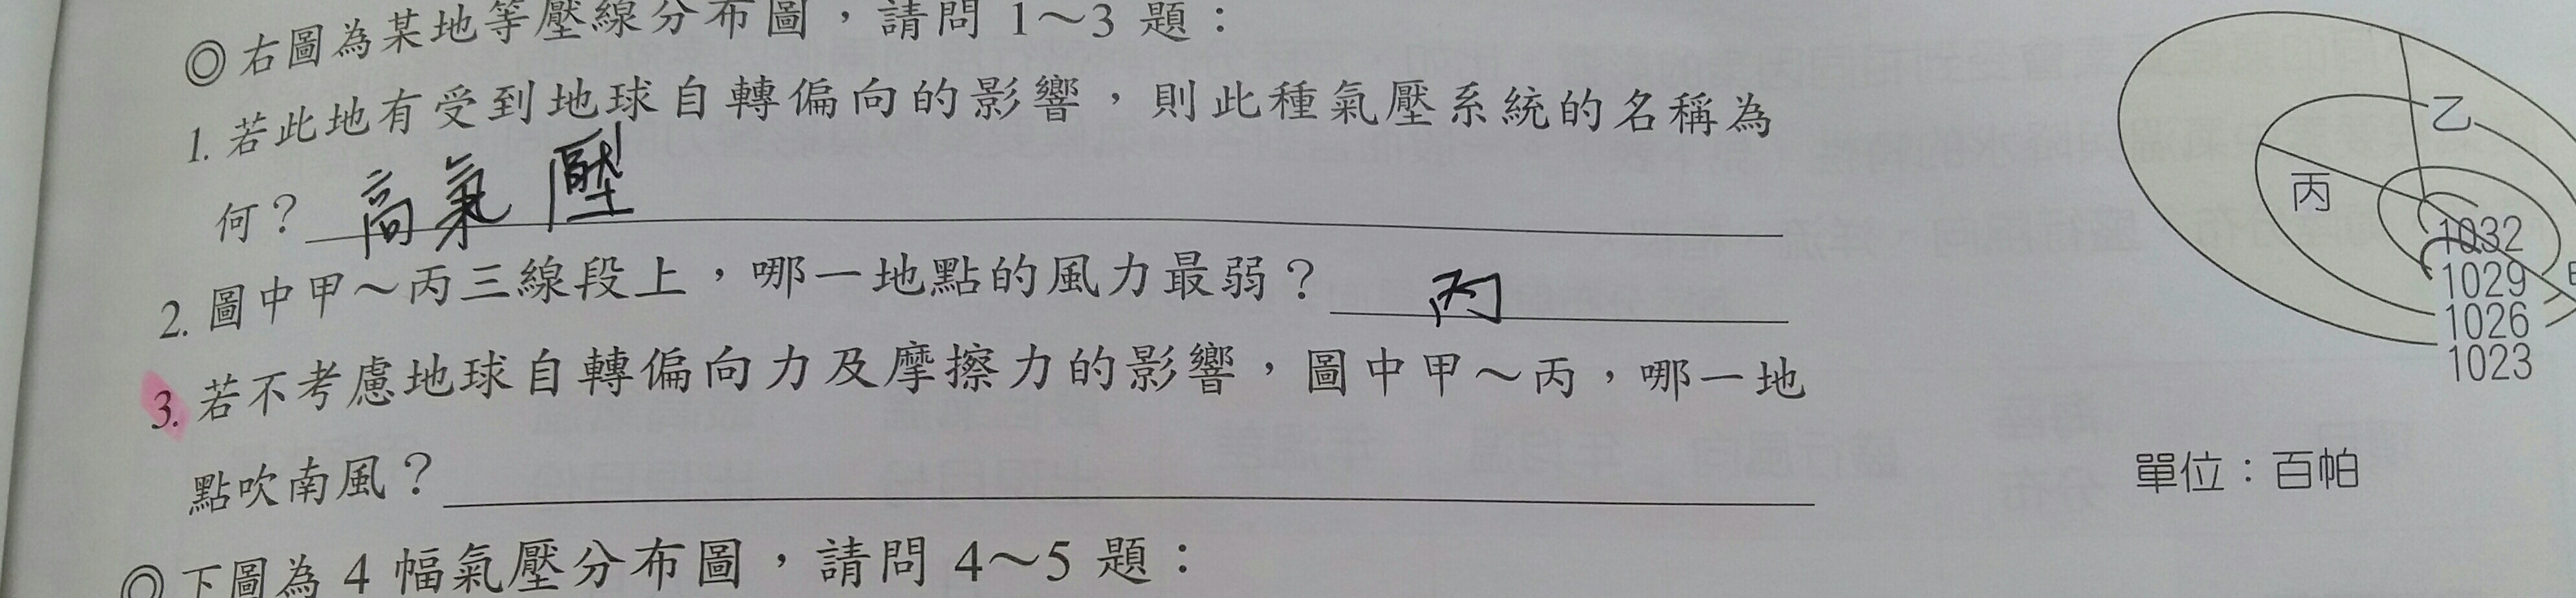 ◎右圖為某地等壓線分布圖，請問 1～3 題：
1. 若此地有受到地球自轉偏向的影響，則此種氣壓系統的名稱為
何？高氣壓
2. 圖中甲～丙三線段上，哪一地點的風力最弱？丙
3. 若不考慮地球自轉偏向力及摩擦力的影響，圖中甲～丙，哪一地
點吹南風？
乙
丙
1032
1029
1026
1023
單位：百帕
◎下圖為 4 幅氣壓分布圖，請問 4～5 題：